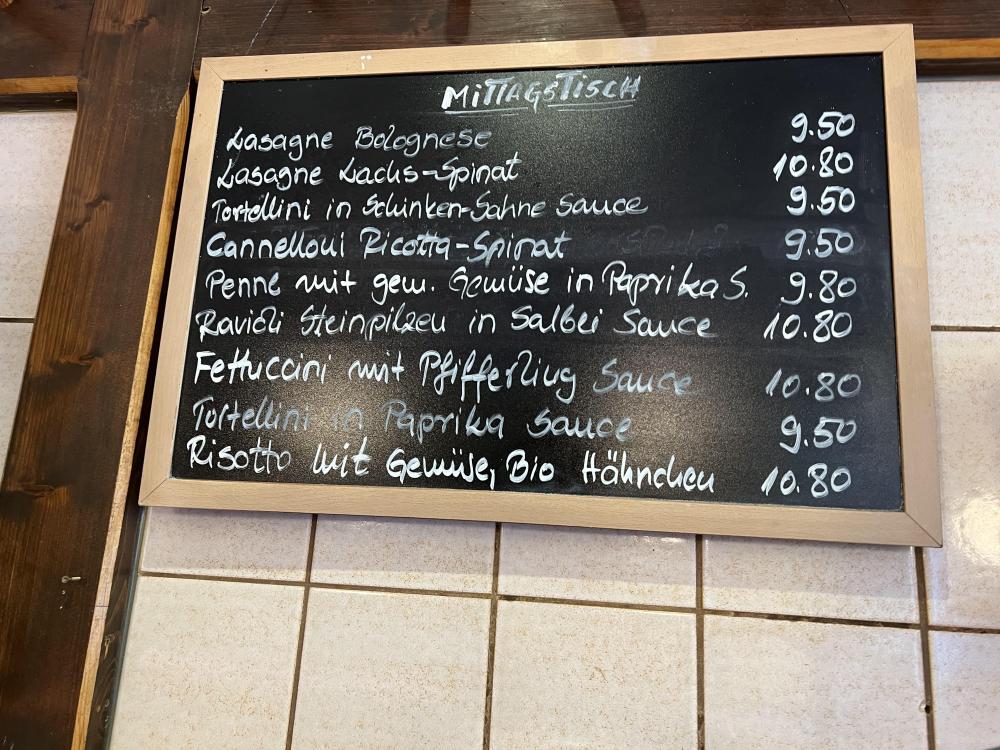 MITTAGSTISCH
Lasagne Bolognese 9.50
Lasagne Lachs-Spinat 10.80
Tortellini in Schinken-Sahne Sauce 9.50
Cannelloni Ricotta-Spinat 9.50
Penne mit gem. Gemüse in Paprika S. 9.80
Ravioli Steinpilzen in Salbei Sauce 10.80
Fettuccini mit Pfifferling Sauce 10.80
Tortellini in Paprika Sauce 9.50
Risotto mit Gemüse, Bio Hähnchen 10.80